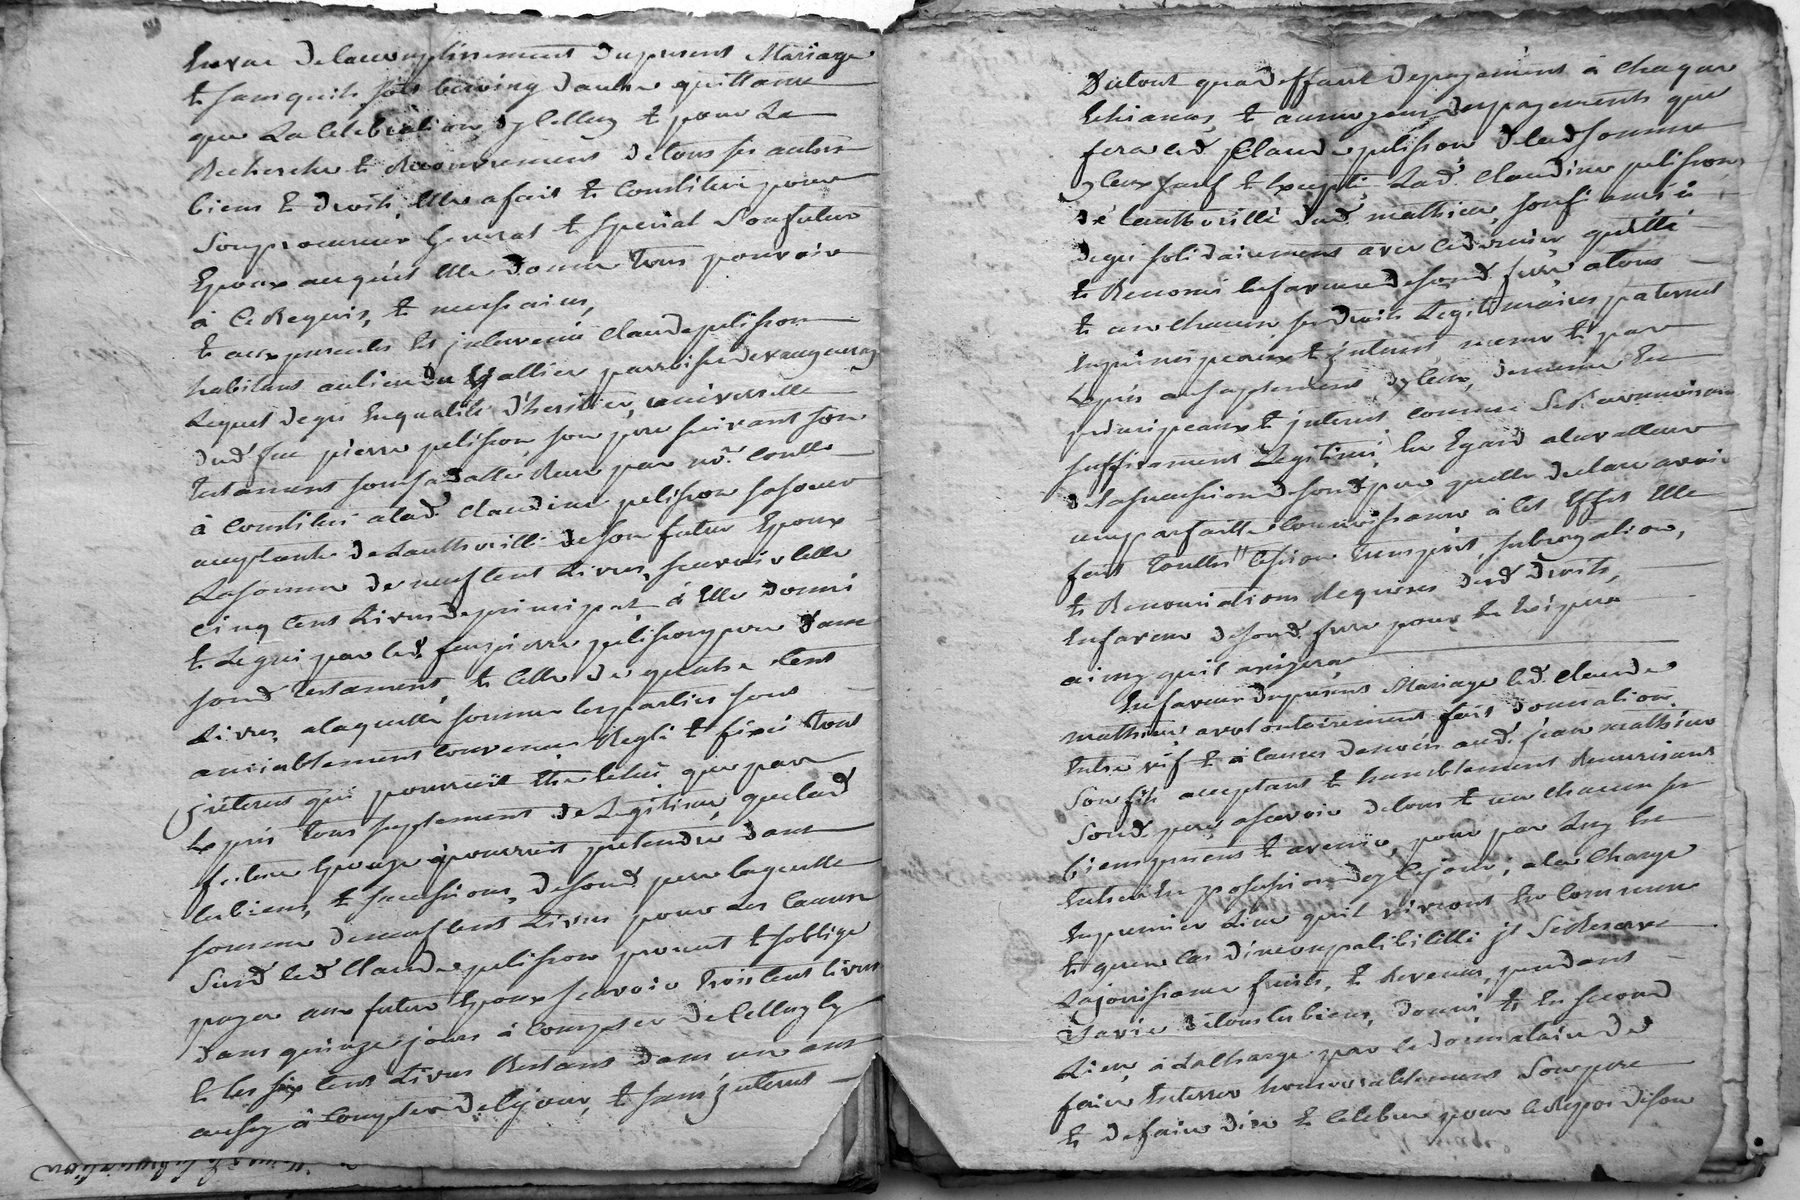 En vue de laccomplissement du present Mariage
et sans quil soit besoing dautre quittance
que La Celebration dycelluy et pour La
Recherche et Recouvrement de tous ses autres
biens et droits, Elle a fait et Constitué pour
Son procureur General et special Son futur
Epoux auquel Elle donne tous pouvoir
à Ce Requis, et necessaires,
et aux presentes Est jntervenu Claude pelisson
habitant au lieu du paroisse de
Lequel de gré En qualité d'heritier universelle
dud. feu pierre pelisson, son pere suivant son
testament sous sa datte Reçu par no.e
à Constitué a lad. Claudine pelisson sa soeur
acceptante de Lauthorité de son futur Epoux
La somme de neuf Cent Livres, scavoir Celle
Cinq Cent Livres de principal à Elle donné
et Legué par led. feu pierre pelisson pere dans
sond. testament, et Celle de quatre Cent
Livres, a laquelle somme les parties sont
amiablement Convenus Reglé et fixé tous
jnterets qui pourroit Etre Echus que par
Exprés tous supplement de Legitime, que lad.
future Epouze pourroit pretendre dans
les biens, et successions, de sond. pere laquelle
somme de neuf Cent Livres pour Les Causes
Susd. led. Claude pelisson promet et soblige
payer aux futur Epoux scavoir trois Cent livres
dans quinze jours à Compter de Celluy Cy
et les six Cent Livres Restans dans un ans
aussy à Compter de Ce jour, et sans jnterest
Du tout qua deffaut de payement à chaque
Echeances, et au moyen des payements que
fera led. Claude pelisson de lad. somme
yceux fait et Lad. Claudine pelisson,
de Lauthorité dud. mathieu,
de gré solidairement avec Ce dernier quitté
et Renoncé En faveur de sond. frere a tous
et un chacun ses droits Legitimaires paternel
En principeaux et jnterest mesme et par
Exprés au supplement dyceux, de mesme En
principeaux et jnterest comme Se Reconnoissant
suffisament Legitimé, Eu Egard a la valleur
d La succession de sond. pere quelle declare avoir
une parfaitte Connoissance à Cet Effet Elle
fait touttes Cession transport, subrogation,
et Renonciations Requises desd. droits,
En faveur de sond. frere pour En Exiger
ainsy quil avizera
En faveur du present Mariage led. Claude
mathieu a volontairement fait donnation
Entre vif et à Cause de noces aud. jean mathieu
Son fils acceptant et humblement Remerciant
Sond. pere ascavoir de tous et un chacun ses
biens presens et avenir, pour par Luy En
Entrer En possession dez Ce jour, a la Charge
En premier Lieu quil vivront En Commune
et qu'en Cas dincompatibilitté jl Se Reserve
La joüissance fruits, et Revenus, pendant
sa vie de tous les biens, donné, et En second
Lieu, à La Charge par le donnataire de
faire Enterrer honnorablement Son pere
et de faire dire et Celebrer pour Le Repos de son